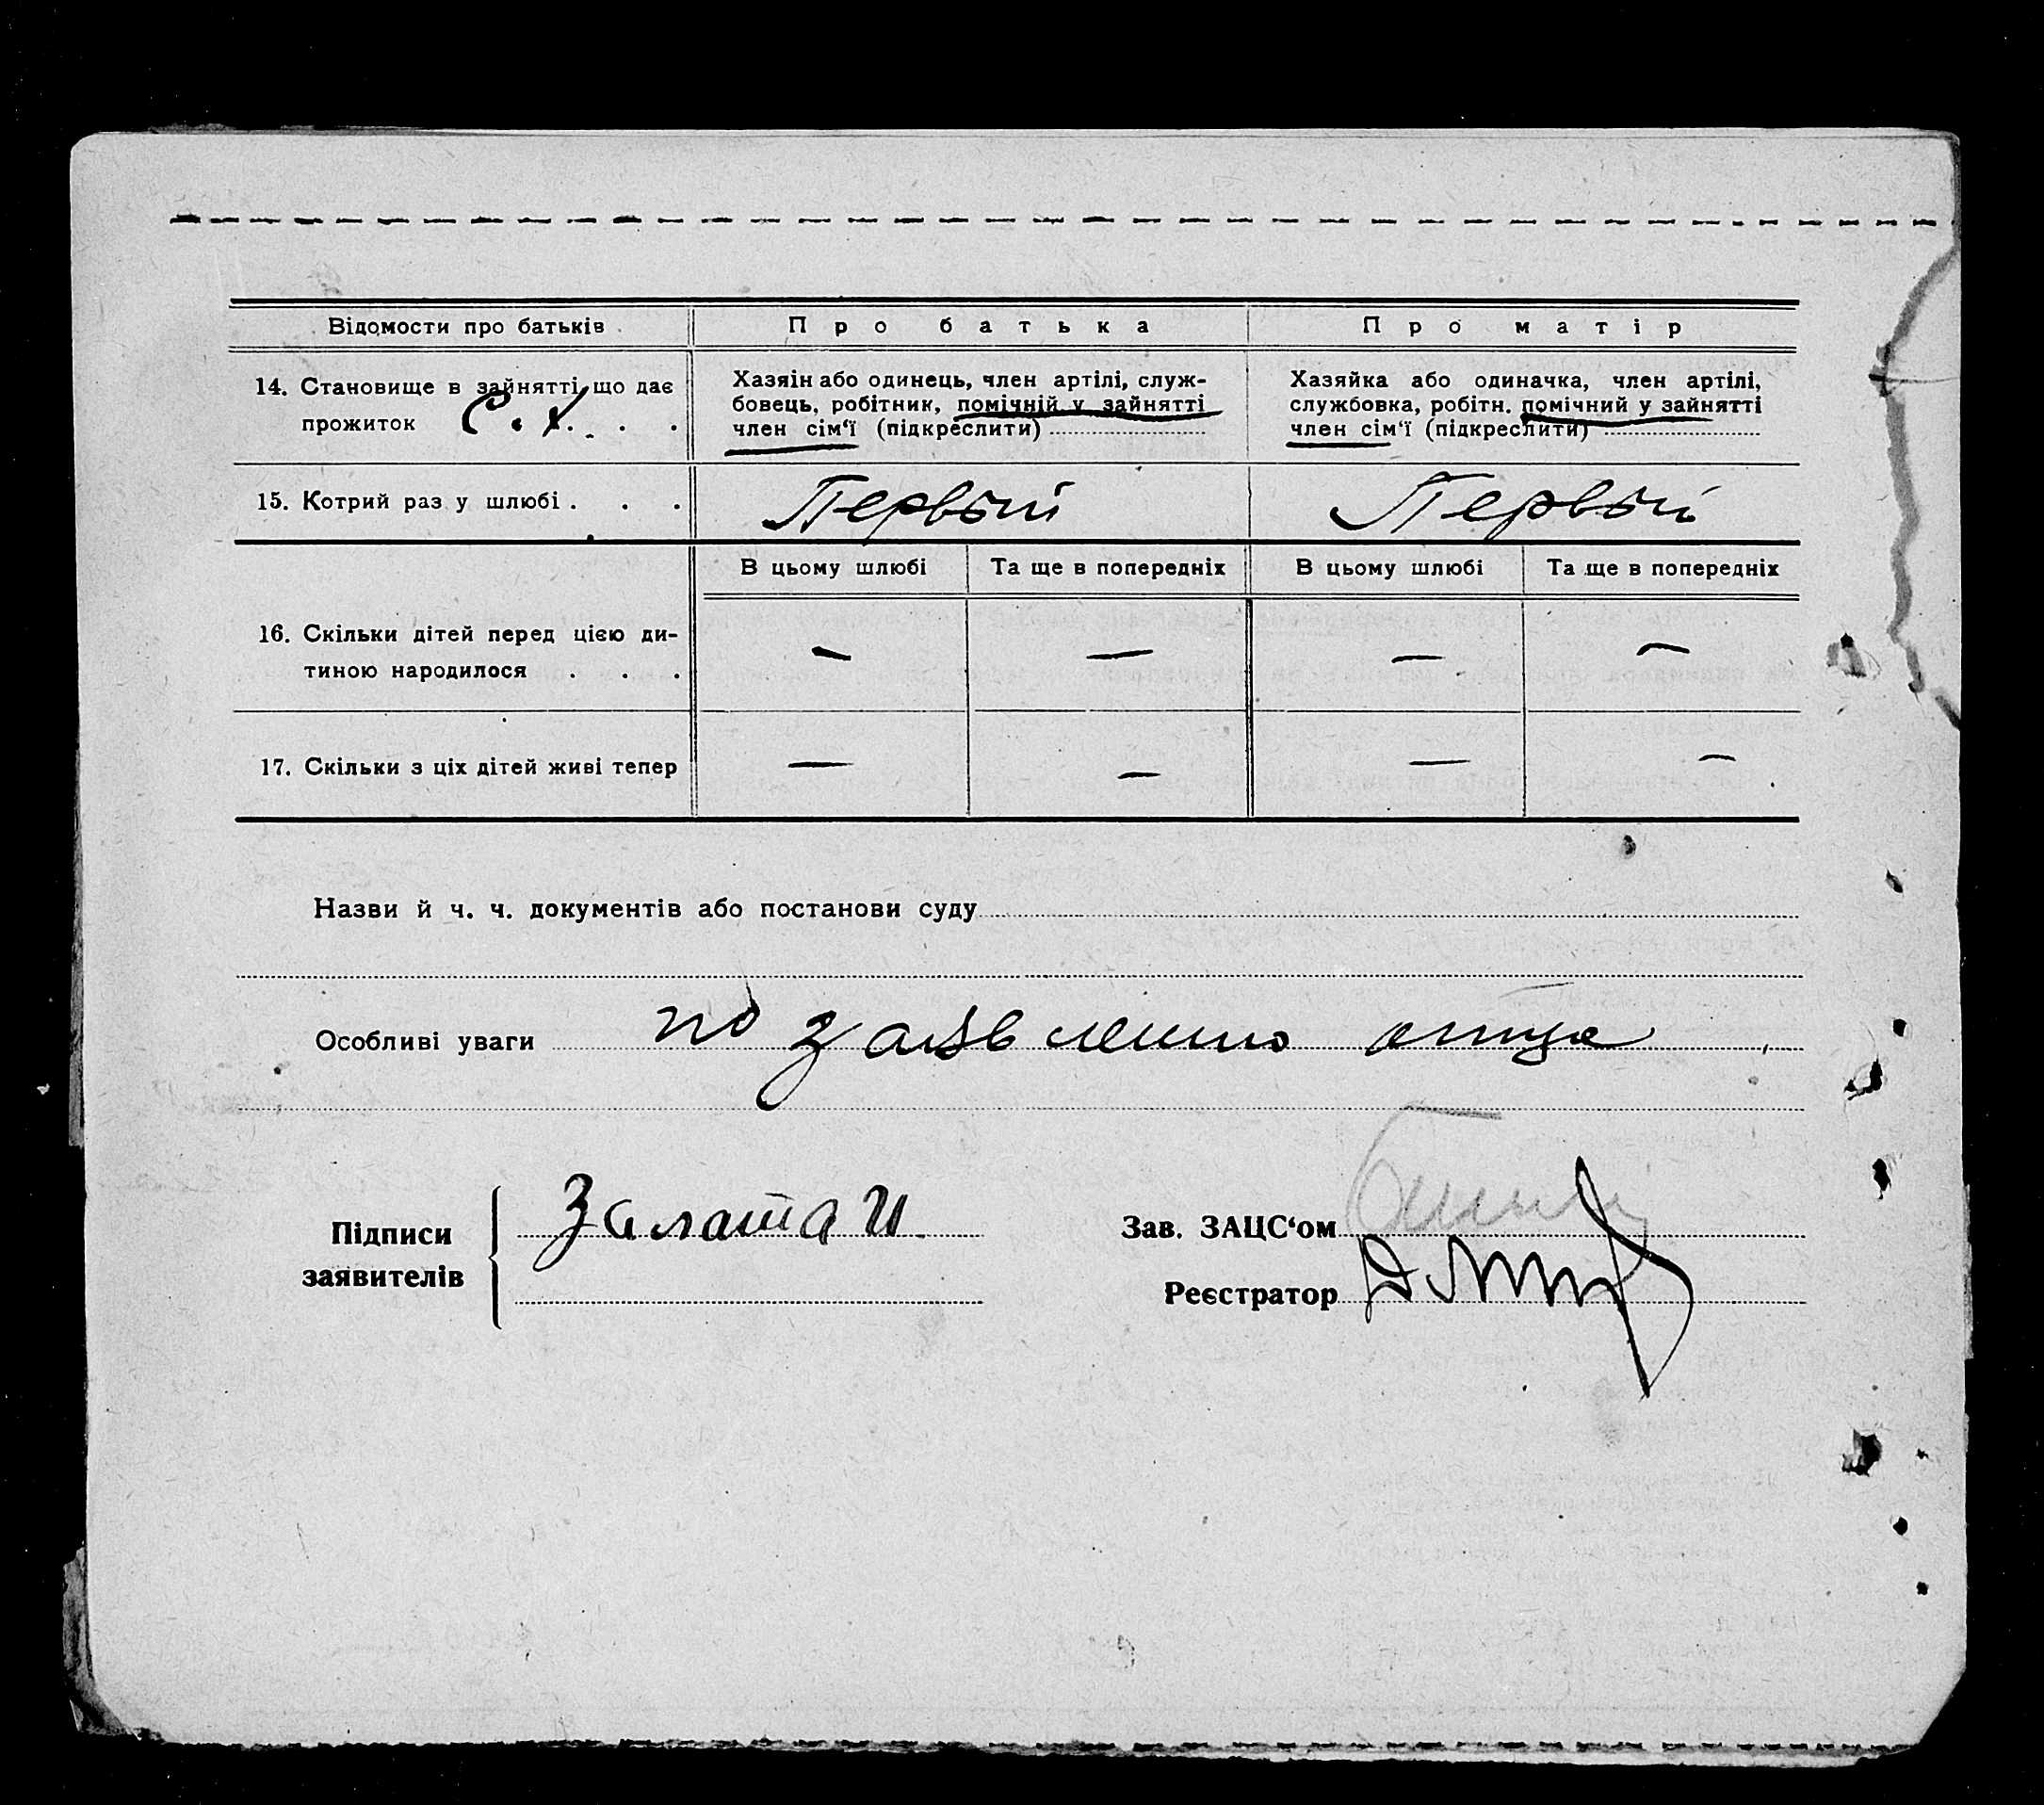 Відомости про батьків
Про батька
Про матір
14. Становище в зайнятті, що дає
прожиток С. Х. . . .
Хазяін або одинець, член артілі, служ-
бовець, робітник, помічній у зайнятті
член сім'ї (підкреслити)
Хазяйка або одиначка, член артілі,
службовка, робітн. помічний у зайнятті
член сім'ї (підкреслити)
15. Котрий раз у шлюбі . . .
Первый
Первый
В цьому шлюбі
Та ще в попередніх
В цьому шлюбі
Та ще в попередніх
16. Скільки дітей перед цією ди-
тиною народилося . . .
— — — —
17. Скільки з ціх дітей живі тепер
— — — —
Назви й ч. ч. документів або постанови суду
Особливі уваги по заявлению отца
Підписи
заявителів
Залата И
Зав. ЗАЦС'ом
Реєстратор